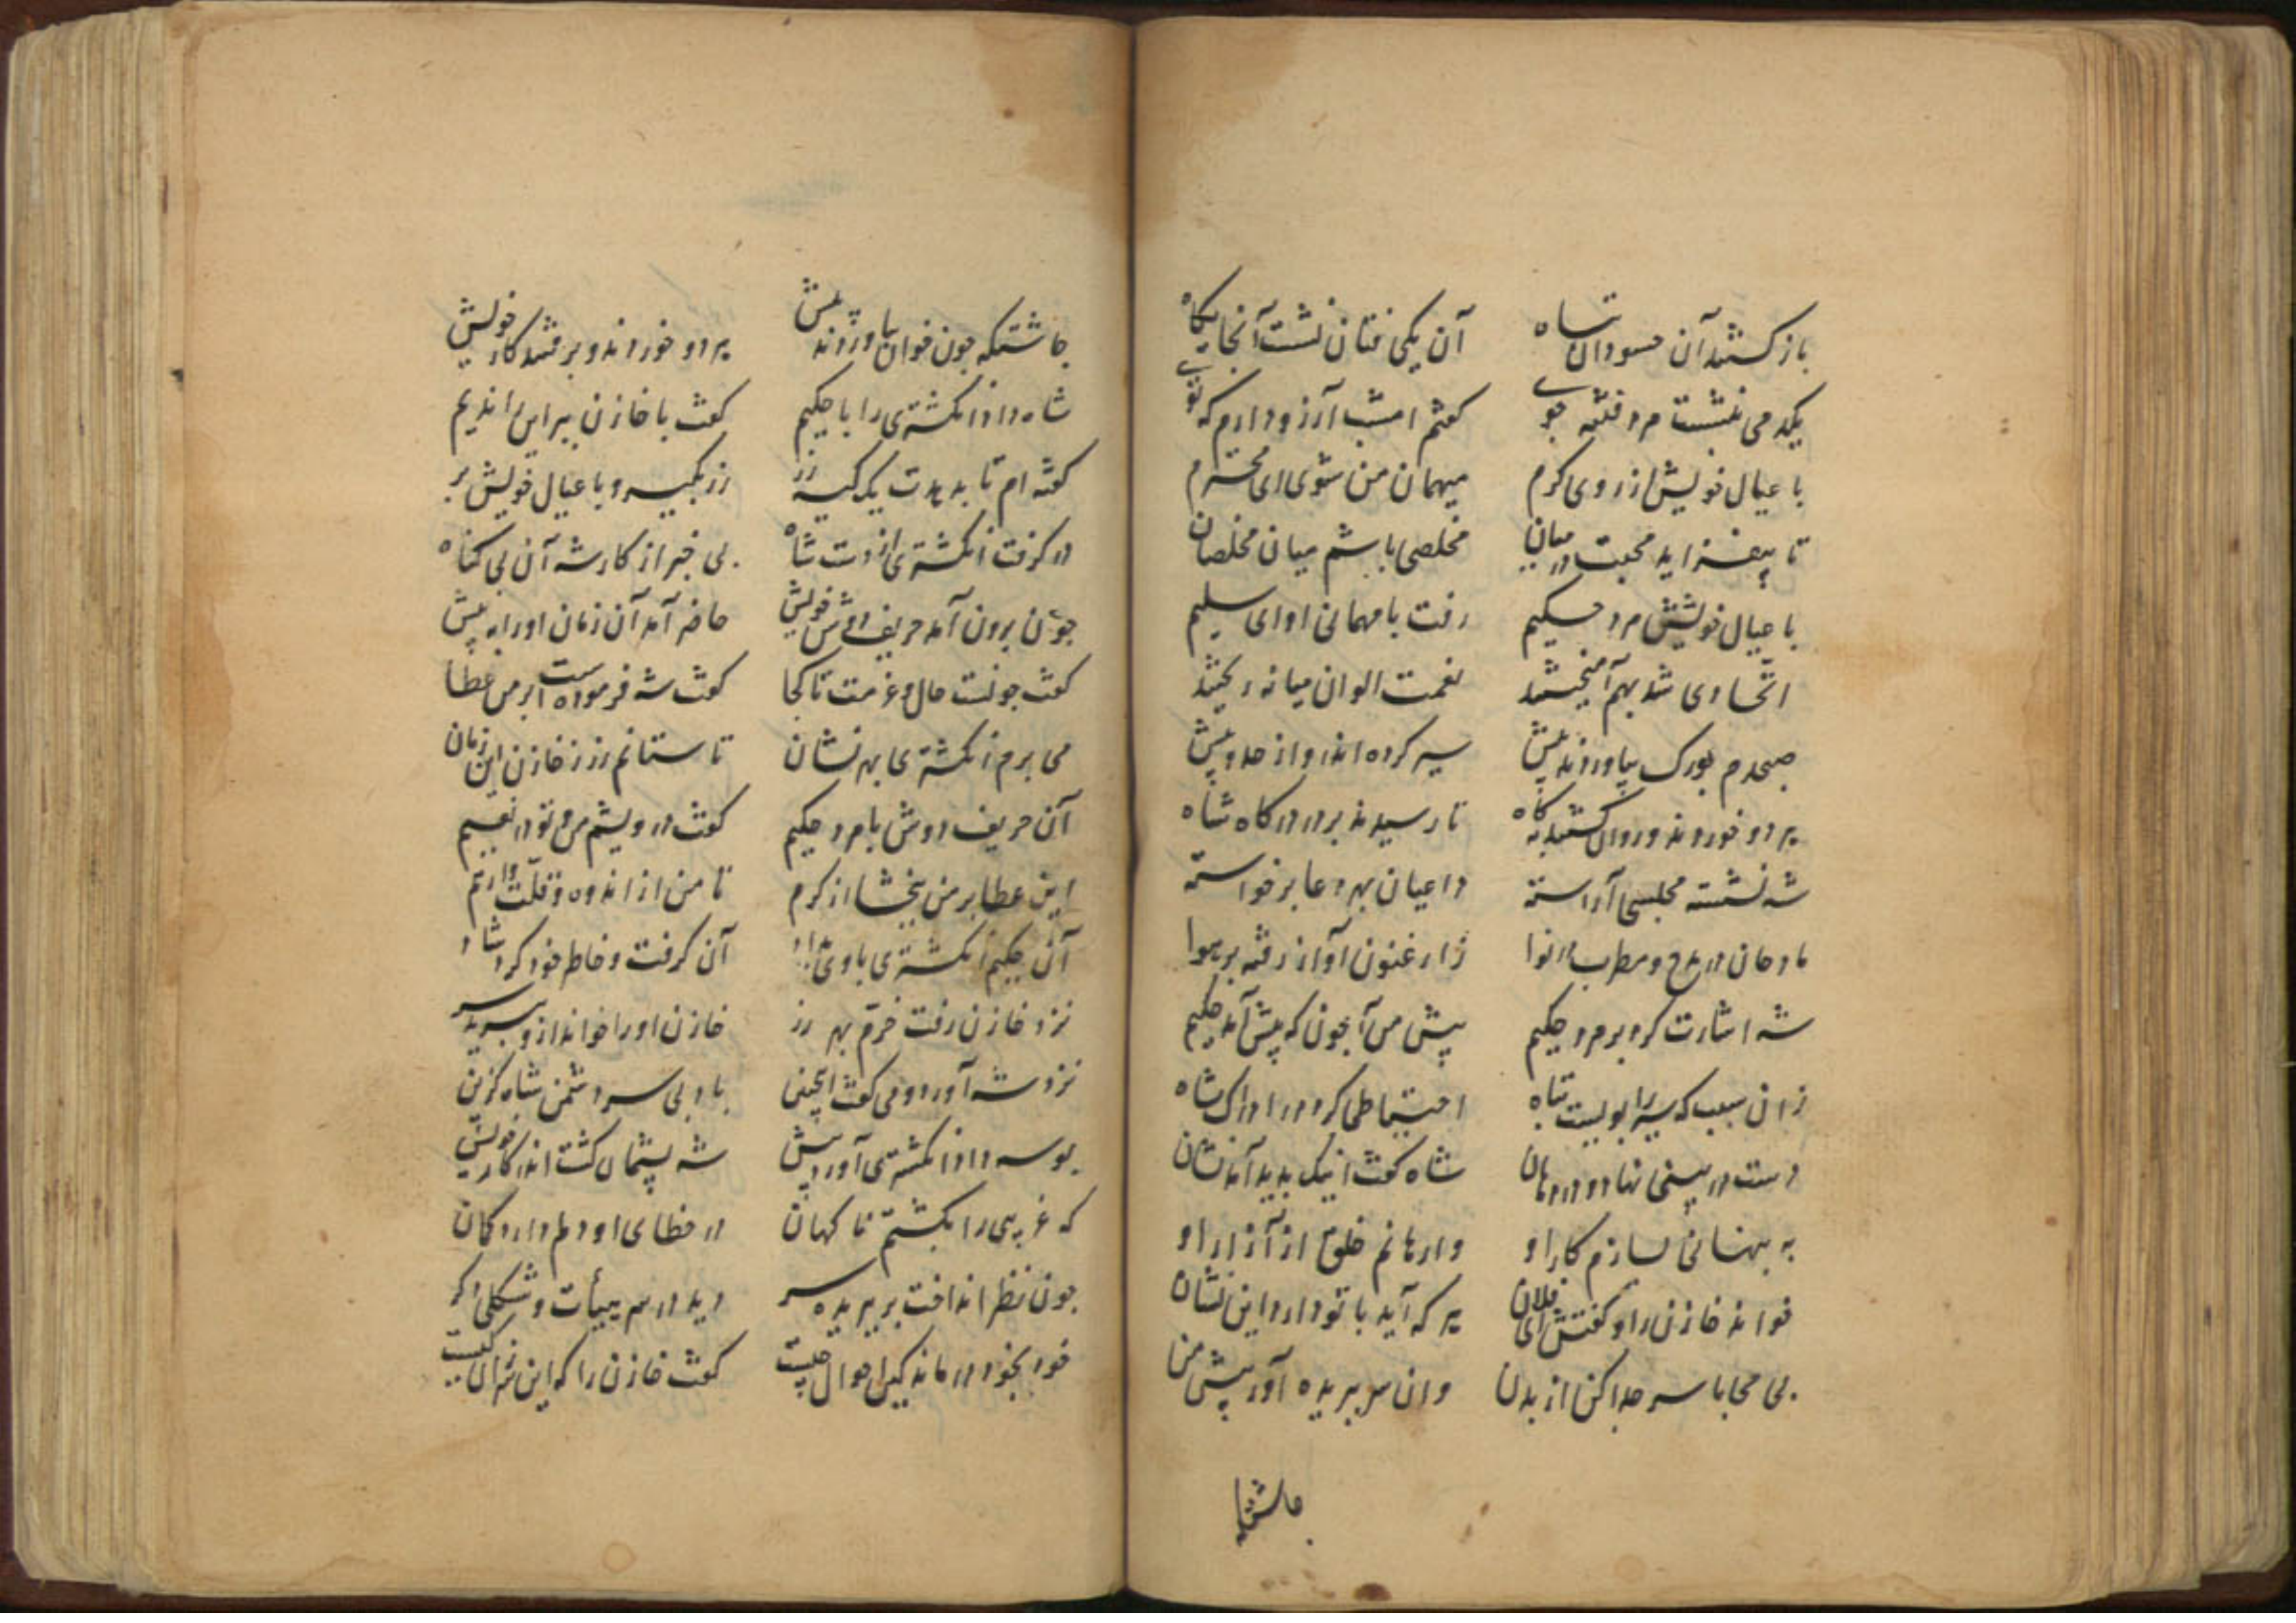 باز گشتند آن حسودان تباه آن یکی فتان نشست آنجایگاه
یکدمی بنشست مرد فتنه جوی گفتم امشب آرزو دارم که توی
با عیال خویش از روی کرم میهمان من شوی ای محترم
تا بیفزاید محبت در میان مخلصی باشم میان مخلصان
با عیال خویشتن مرد حکیم رفت با مهمانی او ای سلیم
اتحادی شد بهم آمیختند نعمت الوان میانه ریختند
صبحدم بورک بیاوردند پیش سیر کرده اندرو از حد و بیش
هر دو خوردند و روان گشتند پگاه تا رسیدند بر در درگاه شاه
شه نشسته مجلسی آراسته داعیان بهر دعا برخواسته
مادحان در مدح و مطرب در نوا ز ارغنون آواز رفته بر هوا
شه اشارت کرد بر مرد حکیم پیش من آ چون که پیش آمد حکیم
زان سبب که سیر را بوییست تباه احتیاطی کرد در ادراک شاه
دست در بینی نهاد و در دهان شاه گفت اینک بدید آمد نشان
به پنهانی بسازم کار او وارهانم خلق از آزار او
خواند خازن را و گفتش ای فلان هر که آید با تو دارد این نشان
بی محابا سر جدا کن از بدن وان سر ببریده آور پیش من
چاشتگه چون خوان بیاوردند پیش هر دو خوردند و برفتند کار خویش
شاه داد انگشتری را با حکیم گفت با خازن ببر این ای ندیم
گفته ام تا بدهدت یک کیسه زر زر بگیر و با عیال خویش بر
در گرفت انگشتری از دست شاه بی خبر از کار شه آن بی گناه
چون برون آمد حریف دوش خویش حاضر آمد آن زمان او را به پیش
گفت چونست حال و عزمت تا کجا گفت شه فرموده است بر من عطا
می برم انگشتری بهر نشان تا ستانم زر ز خازن این زمان
آن حریف دوش با مرد حکیم گفت درویشم من و تو در نعیم
این عطا بر من ببخشا از کرم تا من از اندوه و قلت وارهم
آن حکیم انگشتری با وی بداد آن گرفت و خاطر خود کرد شاد
نزد خازن رفت خرم بهر زر خازن او را خواند ازو ببرید سر
نزد شه آورد و می گفت اینچنین باد بی سر دشمن شاه گزین
بوسه داد انگشتری آورد پیش شه پشیمان گشت اندر کار خویش
که غریبی را بکشتم ناگهان در خطای او دلم دارد گمان
چون نظر انداخت بر ببریده سر دید در هم هیأت و شکلی دگر
خود بخود درماند کین احوال چیست گفت خازن را که این سر آن کیست
چاشتگه